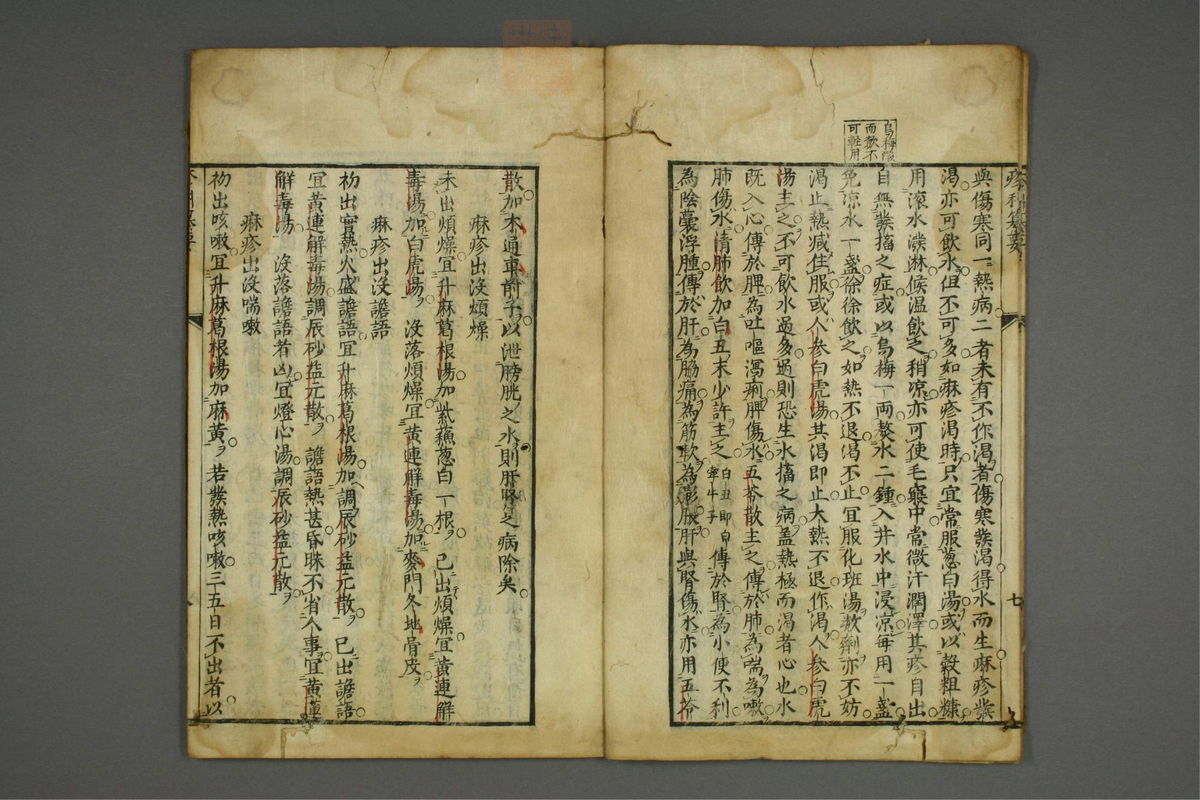 疹科纂要
七
烏梅酸
而歛不
可輕用
與傷寒同一熱病二者未有不作渴者傷寒發渴得水而生麻疹發
渴亦可飲水但不可多如麻疹渴時只宜常服葱白湯或以穀粗糠
用滾水潑淋候温飲之稍凉亦可使毛竅中常微汗潤澤其疹自出
自無發搐之症或以烏梅一兩熬水二鍾入井水中浸凉每用一盞
免凉水一盞徐徐飲之如熱不退渴不止宜服化班湯數劑亦不妨
渴止熱减住服或人參白虎湯其渴即止大熱不退作渴人參白虎
湯主之不可飲水過多過則恐生水搐之病盖熱極而渴者心也水
既入心傳於脾為吐嘔瀉痢脾傷水五苓散主之傳於肺為喘為嗽
肺傷水清肺飲加白丑末少許主之白丑即白牽牛子傳於腎為小便不利
為陰囊浮腫傳於肝為脇痛為筋軟為膨脹肝與腎傷水亦用五苓
散加木通車前子以泄膀胱之水則肝腎之病除矣
麻疹出没煩燥
未出煩燥宜升麻葛根湯加紫蘓葱白一根已出煩燥宜黄連解
毒湯加白虎湯没落煩燥宜黄連解毒湯加麥門冬地骨皮
麻疹出没譫語
初出實熱火盛譫語宜升麻葛根湯加調辰砂益元散已出譫語
宜黄連解毒湯調辰砂益元散譫語熱甚昏昧不省人事宜黄連
解毒湯没落譫語者凶宜燈心湯調辰砂益元散
麻疹出没喘嗽
初出咳嗽宜升麻葛根湯加麻黄若發熱咳嗽三五日不出者以